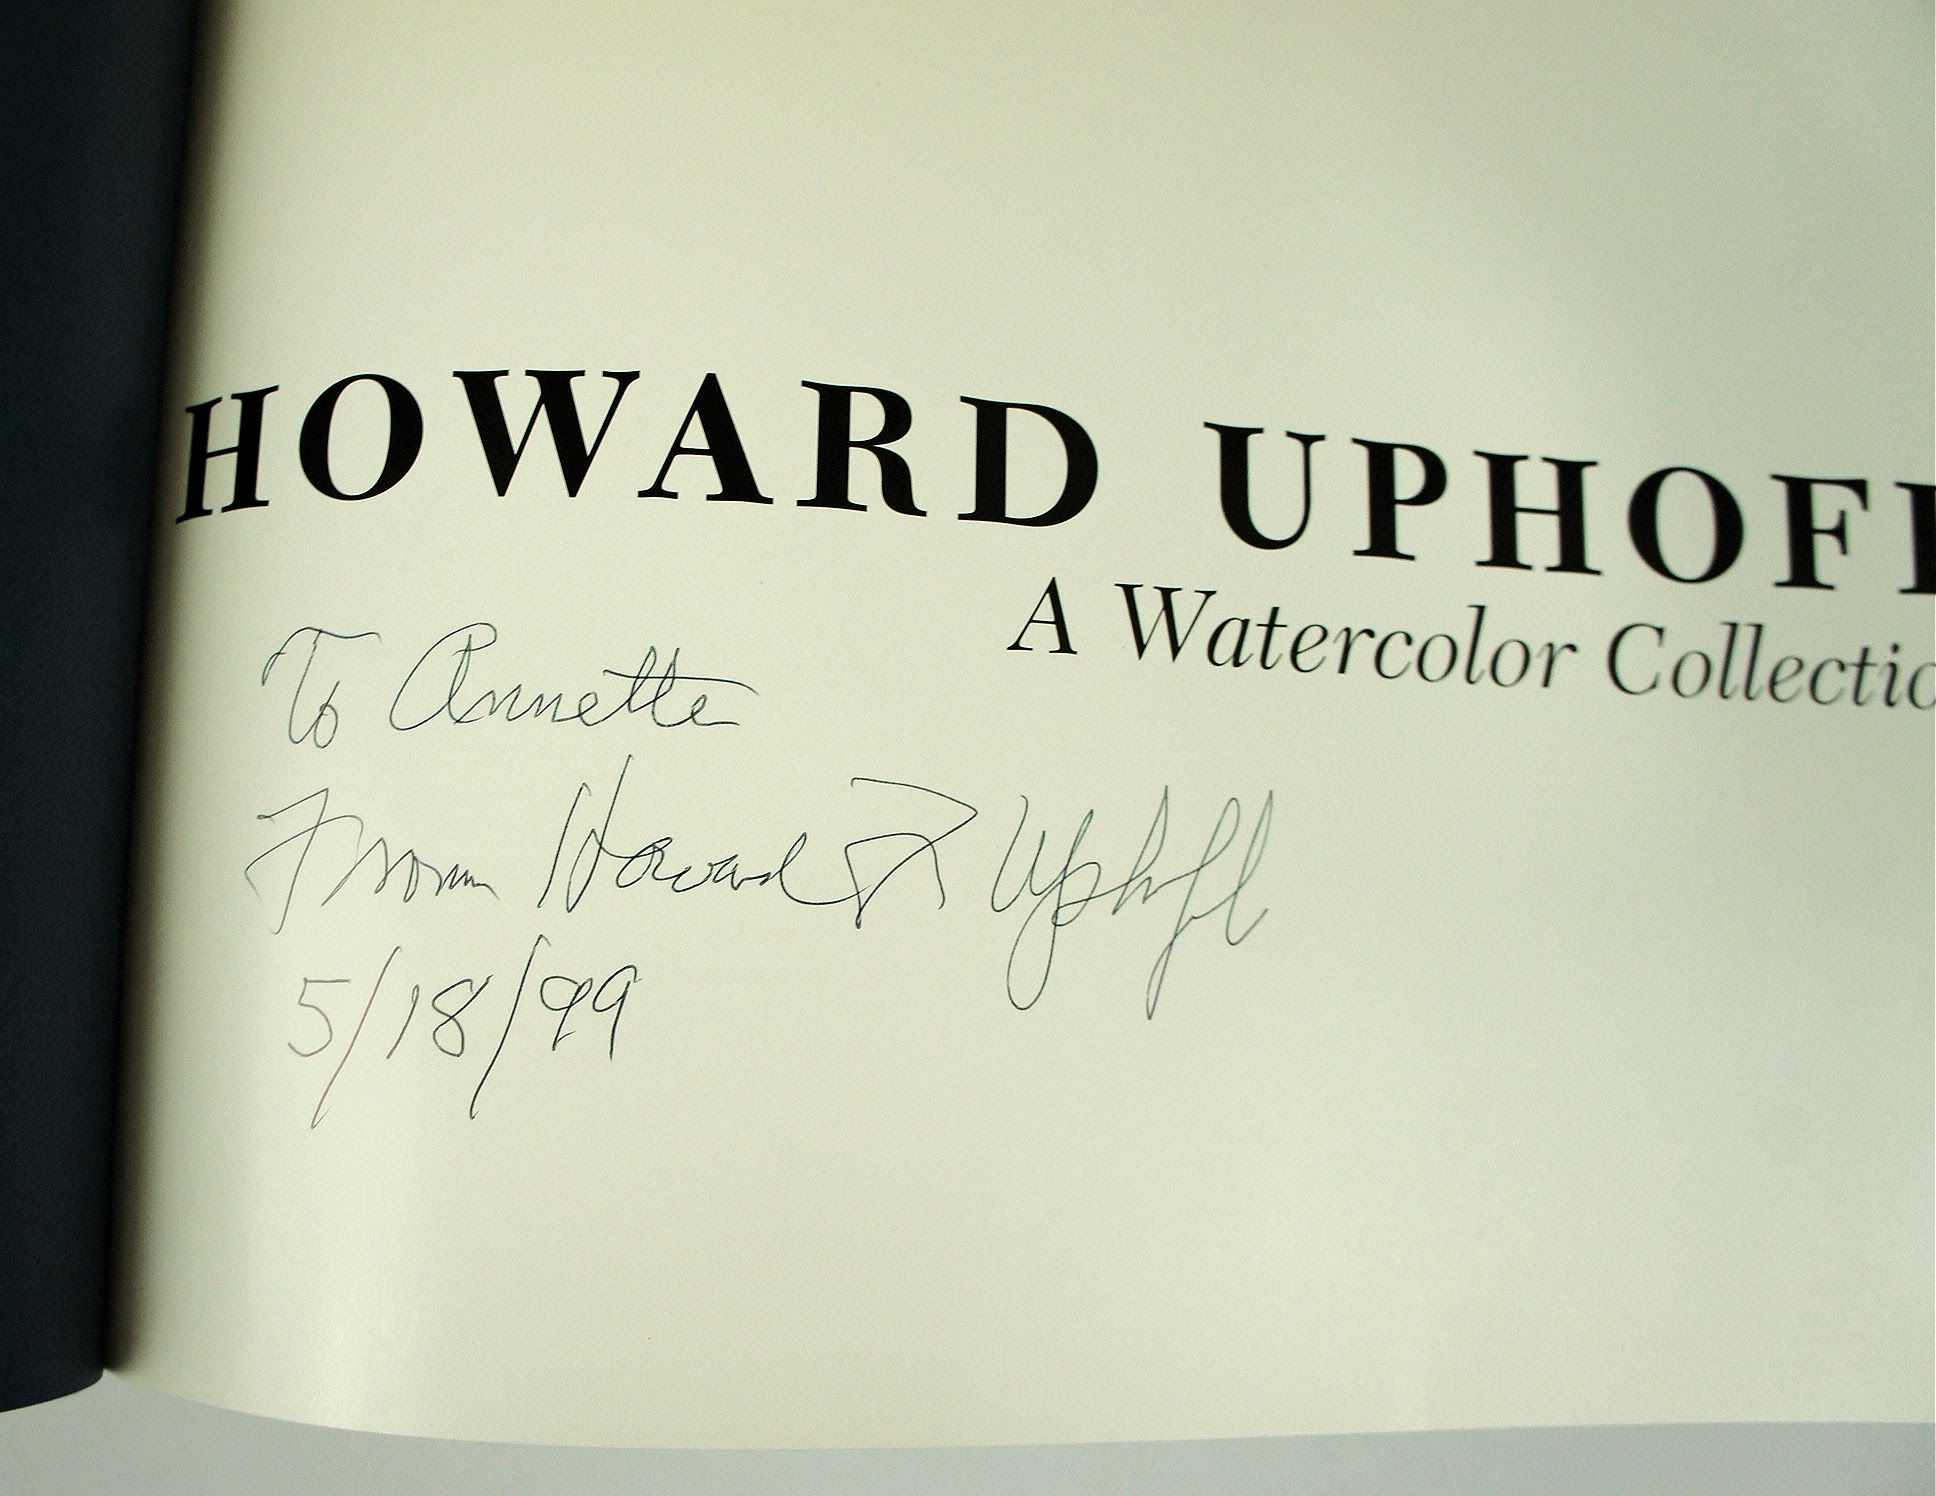 HOWARD UPHOFF
A Watercolor Collectio
To Annette
From Howard R Uphoff
5/18/99